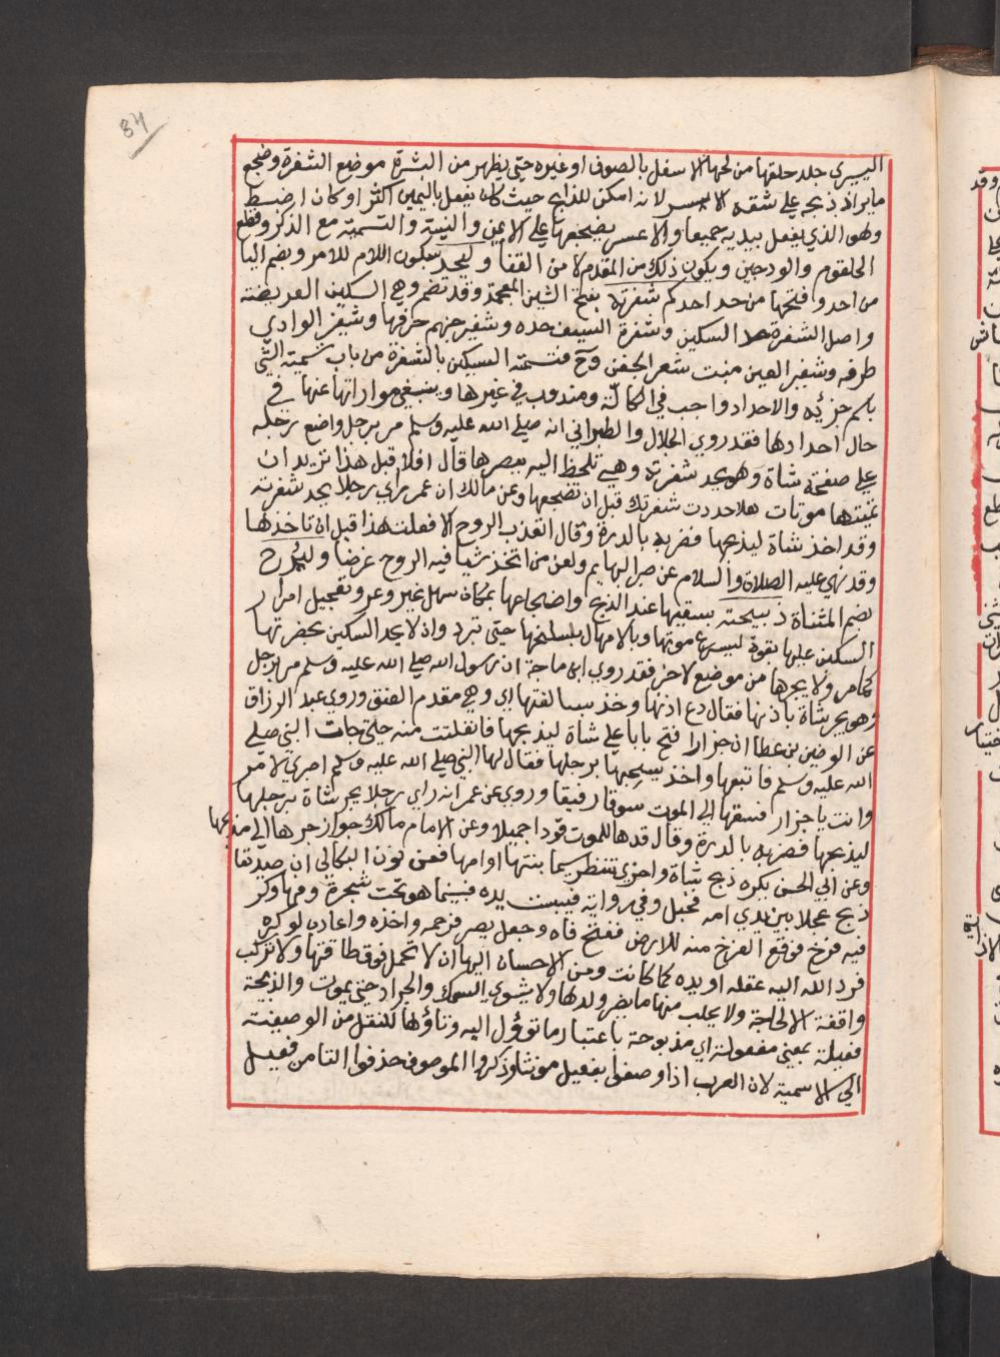 34
اليسرى جلد حلقها من لحيها الاسفل بالصوف او غيره حتى يظهر من البشرة موضع الشفرة وضجع
ما يراد ذبحه على شقه الايسر لانه امكن للذابح حيث كان يفعل باليمين اكثر او كان اضبط
وهو الذي يفعل بيديه جميعا والاعسر يضجعها على الايمن والنية والتسمية مع الذكر وقطع
الحلقوم والودجين ويكون ذلك من المقدم لا من القفا وليحد بسكون اللام للامر وبضم اليا
من احد وفتحها من حد احدكم شفرته بفتح الشين المعجمة وقد تضم وهي السكين العريضة
واصل الشفرة حد السكين وشفرة السيف حده وشفير جهنم حرفها وشفير الوادي
طرفه وشفير العين منبت شعر الجفن وح فتسمية السكين بالشفرة من باب تسمية الشي
باسم جزئه والاحداد واجب في الكالة ومندوب في غيرها وينبغي مواراتها عنها في
حال احدادها فقد روى الخلال والطبراني انه صلى الله عليه وسلم مر برجل واضع رجله
على صفحة شاة وهو يحد شفرته وهي تلحظ اليه ببصرها قال افلا قبل هذا تريد ان
تميتها موتات هلا حددت شفرتك قبل ان تضجعها وعن مالك ان عمر راى رجلا يحد شفرته
وقد اخذ شاة ليذبحها فضربه بالدرة وقال اتعذب الروح الا فعلت هذا قبل ان تاخذها
وقد نهى عليه الصلاة والسلام عن صبر البهايم ولعن من اتخذ شيا فيه الروح غرضا وليرح
بضم المثناة ذبيحته بسقيها عند الذبح واضجاعها بمكان سهل غير وعر وتعجيل امرار
السكين عليها بقوة ليسرع موتها وبالامهال بسلخها حتى تبرد وان لا يحد السكين بحضرتها
كما مر ولا يجرها من موضع لاخر فقد روى ابن ماجة ان رسول الله صلى الله عليه وسلم مر برجل
وهو يجر شاة باذنها فقال دع اذنها وخذ بسالفتها اي وهي مقدم العنق وروى عبد الرزاق
عن الوضين بن عطا ان جزارا فتح بابا على شاة ليذبحها فانفلتت منه حتى جات النبي صلى
الله عليه وسلم فاتبعها واخذ يسحبها برجلها فقال لها النبي صلى الله عليه وسلم اصبري لامر
وانت يا جزار فسقها الى الموت سوقا رفيقا وروي عن عمر انه راى رجلا يجر شاة برجلها
ليذبحها فضربه بالدرة وقال قدها للموت قودا جميلا وعن الامام مالك جواز جرها الى مذبحها
وعن ابي الحسن يكره ذبح شاة واخرى تنتظر سيما بنتها او امها فعن نوف البكالي ان صديقا
ذبح عجلا بين يدي امه فخبل وفي رواية فيبست يده فبينما هو تحت شجرة وفيها وكر
فيه فرخ فوقع الفرخ منه للارض ففتح فاه وجعل يصر فرحمه واخذه واعاده لوكره
فرد الله اليه عقله او يده كما كانت ومن الاحسان اليها ان لا تحمل فوق طاقتها ولا تركب
واقفة الا لحاجة ولا يحلب منها ما يضر ولدها ولا يشوى السمك والجراد حتى يموت والذبيحة
فعيلة بمعنى مفعولة اي مذبوحة باعتبار ما تؤول اليه وتاؤها للنقل من الوصفية
الى الاسمية لان العرب اذا وصفوا بفعيل مونثا وذكروا الموصوف حذفوا التا من فعيل